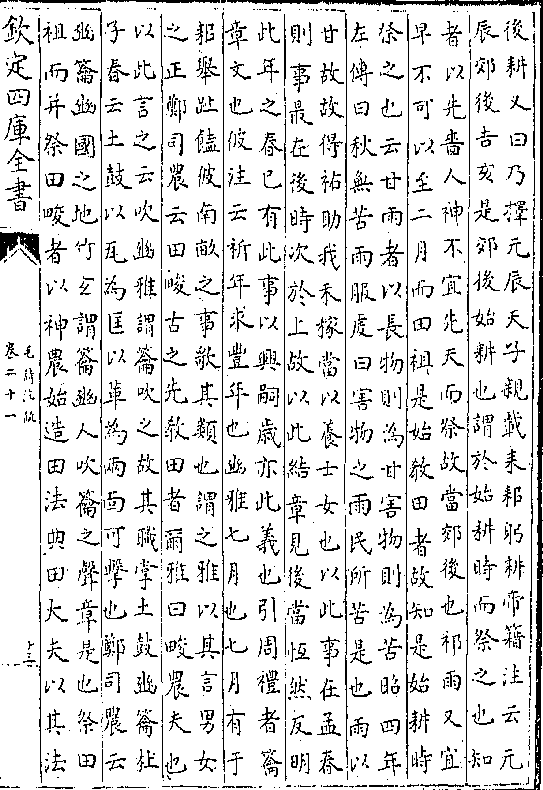 後耕又曰乃擇元辰天子親載耒耜躬耕帝籍注云元
辰郊後吉亥是郊後始耕也謂於始耕時而祭之也知
者以先嗇人神不宜先天而祭故當郊後也祁雨又宜
早不可以至二月而田祖是始教田者故知是始耕時
祭之也云甘雨者以長物則為甘害物則為苦昭四年
左傳曰秋無苦雨服虔曰害物之雨民所苦是也雨以
甘故故得祐助我禾稼當以養士女也以此事在孟春
則事最在後時次於上故以此結章見後當恒然反明
此年之春已有此事以興嗣歲亦此義也引周禮者籥
章文也彼注云祈年求豐年也豳雅七月也七月有于
耜舉趾饁彼南畝之事歌其類也謂之雅以其言男女
之正鄭司農云田畯古之先教田者爾雅曰畯農夫也
以此言之云吹豳雅謂籥吹之故其職掌土鼓豳籥杜
子春云土鼓以瓦為匡以革為兩面可擊也鄭司農云
豳籥豳國之地竹玄謂籥豳人吹籥之聲章是也祭田
祖而并祭田畯者以神農始造田法典田大夫以其法
欽定四庫全書
毛詩注疏
卷二十一